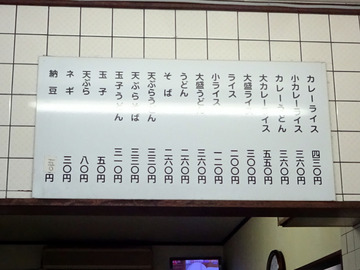 カレーライス 四三〇円
小カレーライス 三六〇円
カレーうどん 三六〇円
大カレーライス 五五〇円
大盛ライス 二〇〇円
ライス
小ライス 一二〇円
大盛うどん 三六〇円
うどん 二六〇円
そば 二六〇円
天ぷらうどん 三三〇円
天ぷらそば 三三〇円
玉子うどん 三一〇円
玉子 五〇円
天ぷら 八〇円
ネギ 三〇円
納豆 円